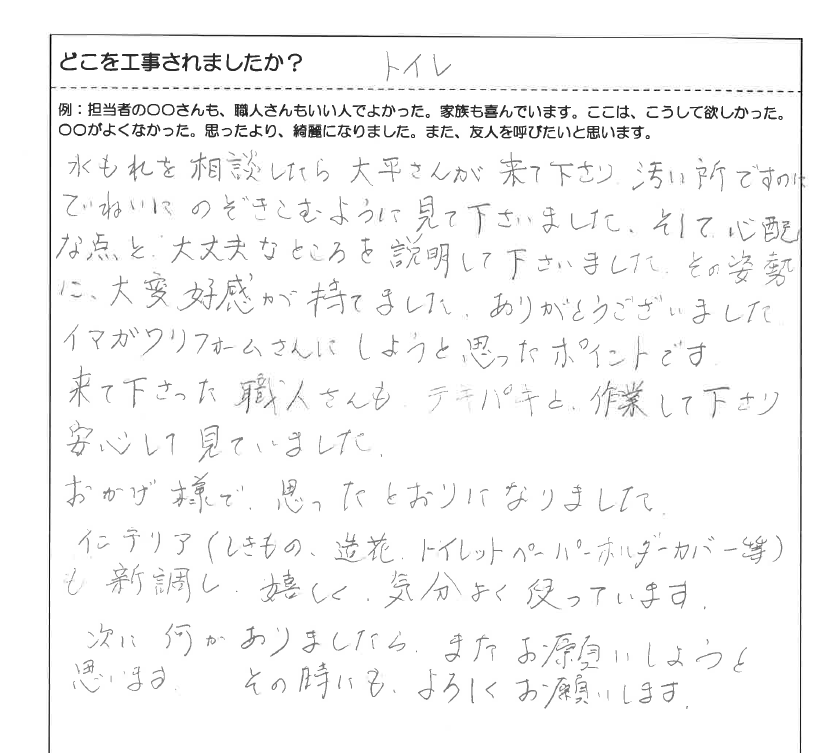 どこを工事されましたか？ トイレ
例：担当者の〇〇さんも、職人さんもいい人でよかった。家族も喜んでいます。ここは、こうして欲しかった。
〇〇がよくなかった。思ったより、綺麗になりました。また、友人を呼びたいと思います。
水もれを相談したら大平さんが来て下さり汚い所ですのに
ていねいにのぞきこむように見て下さいました。そして心配
な点と、大丈夫なところを説明して下さいました。その姿勢
に、大変好感が持てました。ありがとうございました
イマガワリフォームさんにしようと思ったポイントです。
来て下さった職人さんも、テキパキと、作業して下さり
安心して見ていました。
おかげ様で、思ったとおりになりました。
インテリア（しきもの、造花、トイレットペーパーホルダーカバー等）
も新調し、嬉しく、気分よく使っています。
次に何かありましたら、またお願いしようと
思います。その時にも、よろしくお願いします。